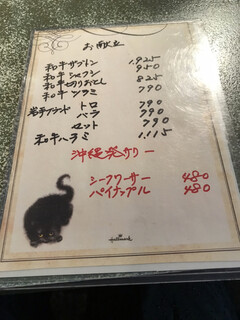 お献立
和牛ザブトン 1,925
和牛シャクシ 950
和牛切りおとし 825
和牛ツラミ 790
岩手ブランド トロ 790
バラ 790
セット 790
和牛ハラミ 1,115
沖縄発サワー
シークワーサー 480
パイナップル 480
Hallmark